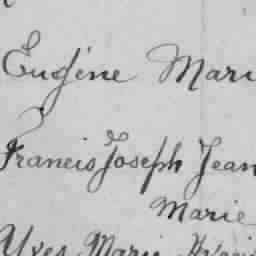 Eugène Mari
Francis Joseph Jean
Marie
Yves Marie